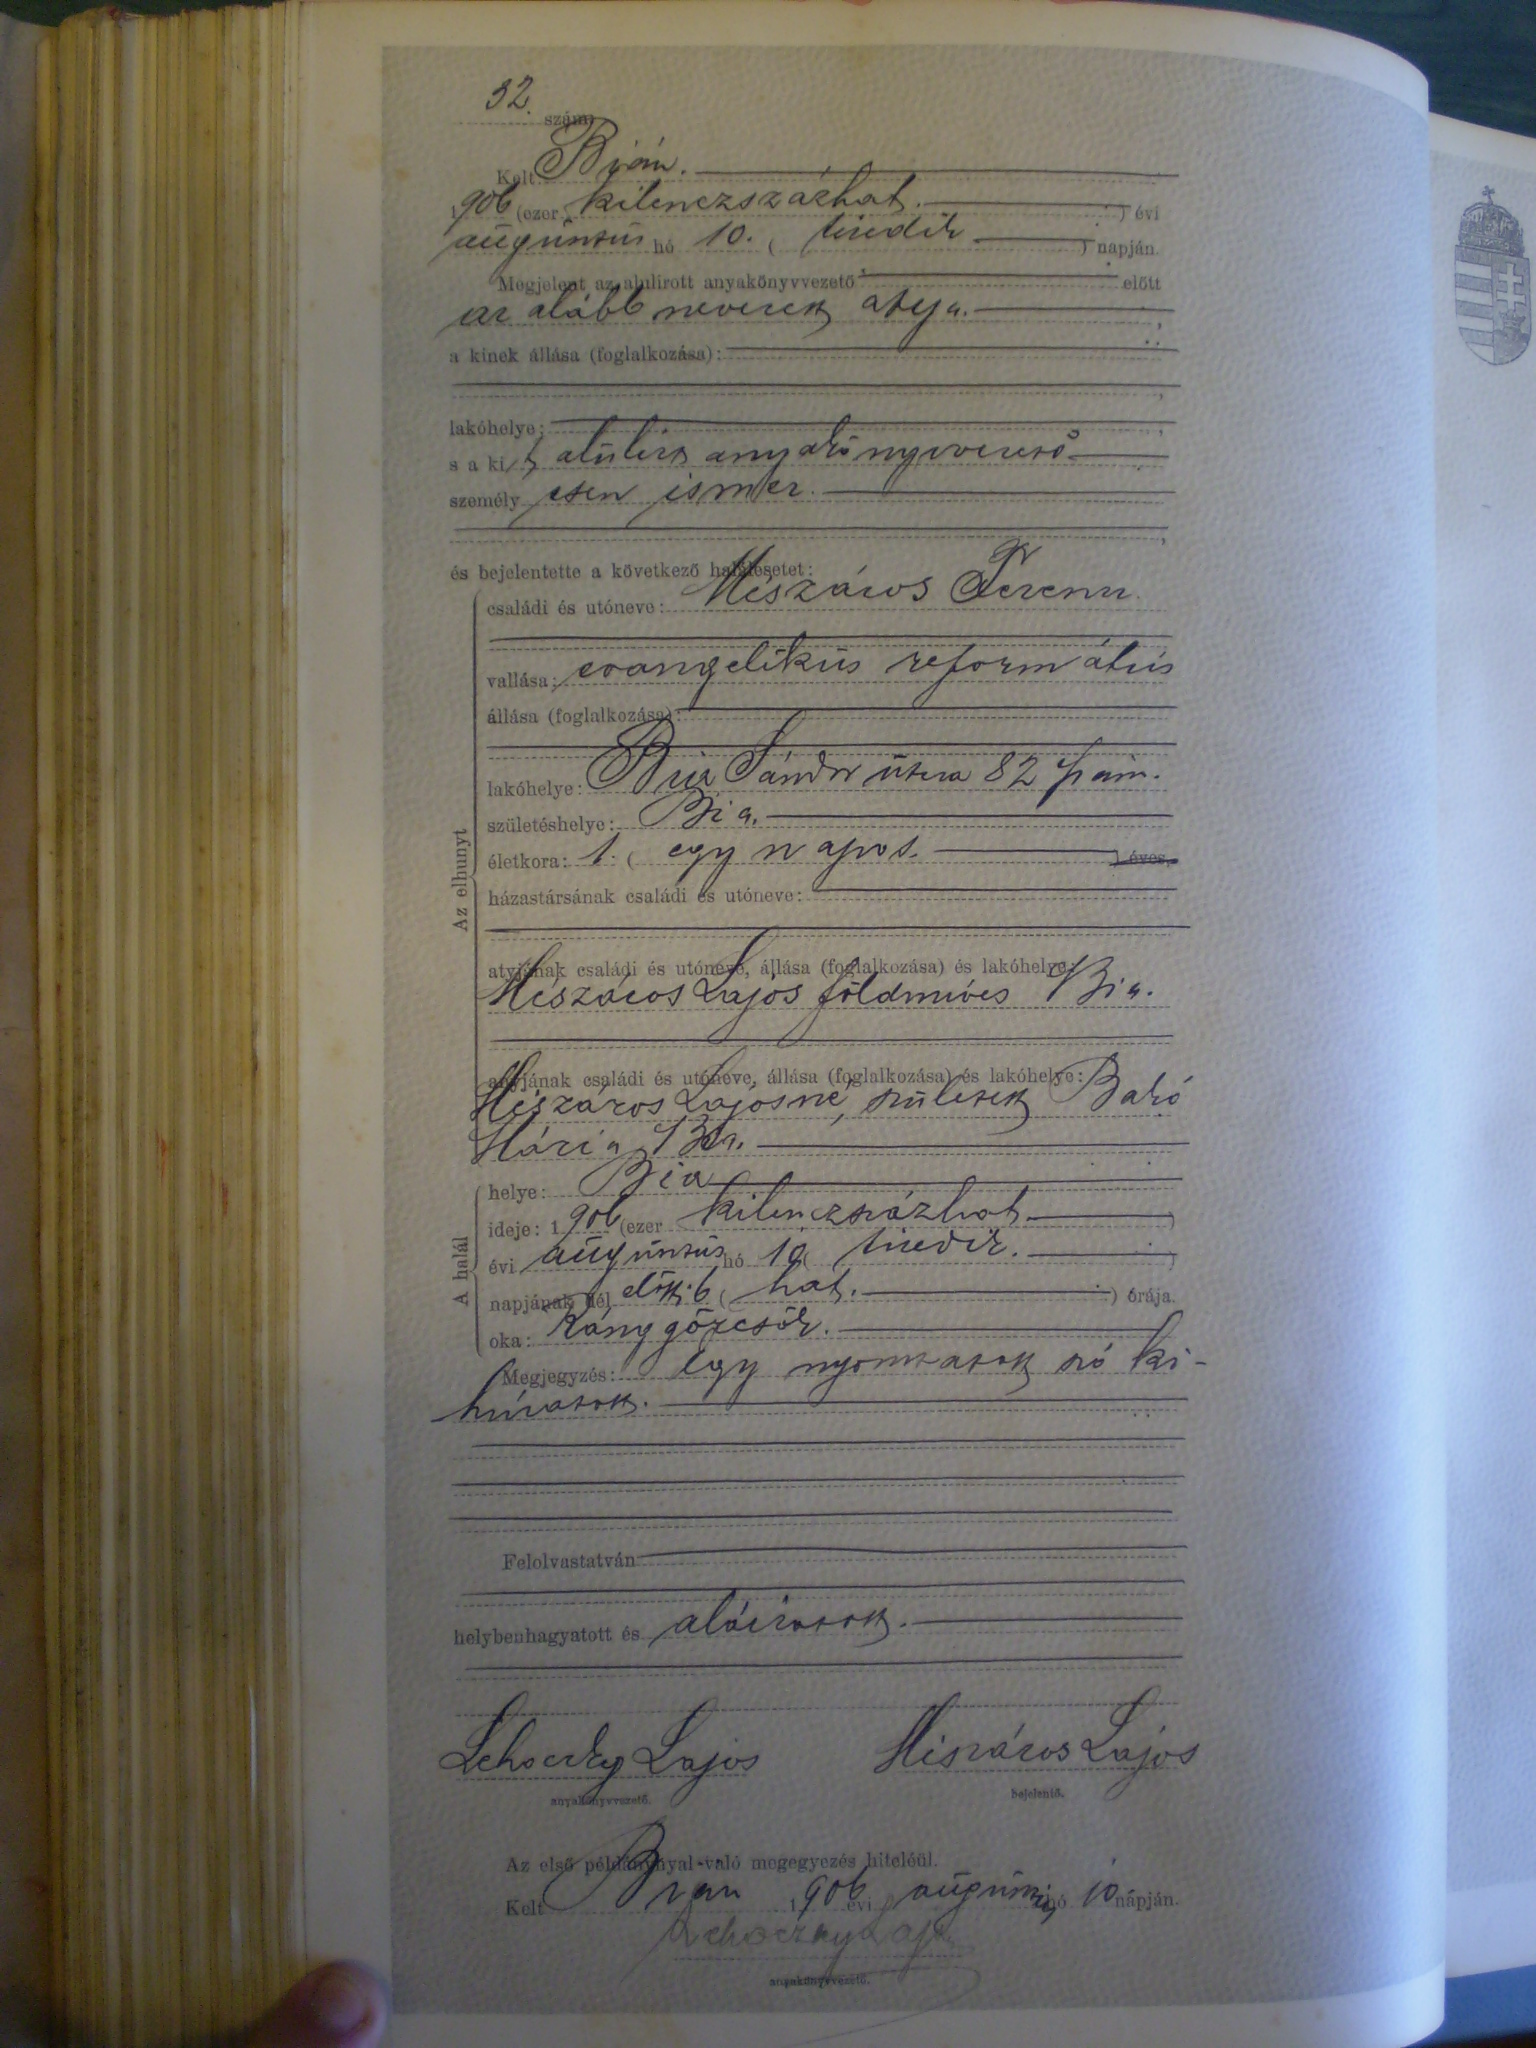 32. szám
Kelt Bián.
1906 (ezer kilenczszázhat.) évi
augusztus hó 10. ( tizedik ) napján.
Megjelent az alulirott anyakönyvvezető előtt
az alább nevezett atyja.
a kinek állása (foglalkozása):
lakóhelye:
s a kit alulirt anyakönyvvezető
személyesen ismer.
és bejelentette a következő halálesetet:
családi és utóneve: Mészáros Ferencz
vallása: evangelikus református
állása (foglalkozása):
lakóhelye: Bia Sándor utcza 82 szám.
születéshelye: Bia.
életkora: 1. ( egy napos. ) éves,
házastársának családi és utóneve:
Az elhunyt
atyjának családi és utóneve, állása (foglalkozása) és lakóhelye:
Mészáros Lajos földmives Bia.
anyjának családi és utóneve, állása (foglalkozása) és lakóhelye:
Mészáros Lajosné, született Bakó
Mária, Bia.
A halál
helye: Bia
ideje: 1906 (ezer kilenczszázhat.)
évi augusztus hó 10 ( tizedik. )
napjának dél előtt 6 ( hat. ) órája.
oka: Ránggörcsök.
Megjegyzés: Egy nyomtatott szó ki-
húzatott.
Felolvastatván
helybenhagyatott és aláiratott.
Lehoczky Lajos Mészáros Lajos
anyakönyvvezető. bejelentő.
Az első példánynyal való megegyezés hiteléül.
Kelt Bián 1906 évi augusztus hó 10 napján.
Lehoczky Lajos
anyakönyvvezető.